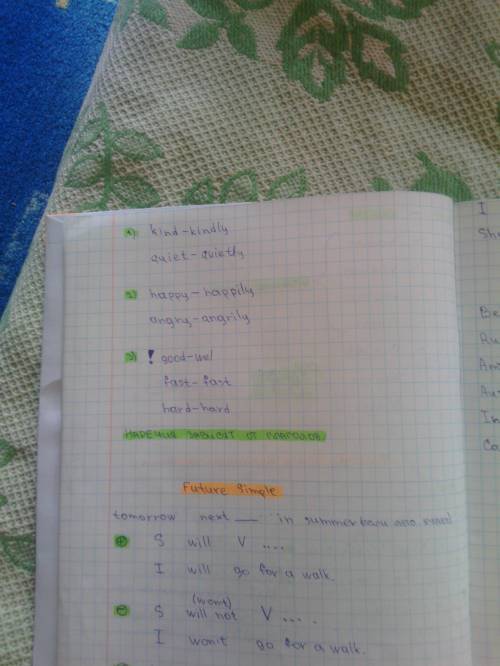 1) kind-kindly
quiet-quietly
2) happy-happily
angry-angrily
3) ! good-wel
fast-fast
hard-hard
НАРЕЧИЯ ЗАВИСЯТ ОТ ГЛАГОЛОВ
Future Simple
tomorrow next ___ in summer
+ S will V ....
I will go for a walk.
(won't)
- S will not V ....
I won't go for a walk.
I
Sh
Be
Ru
Co